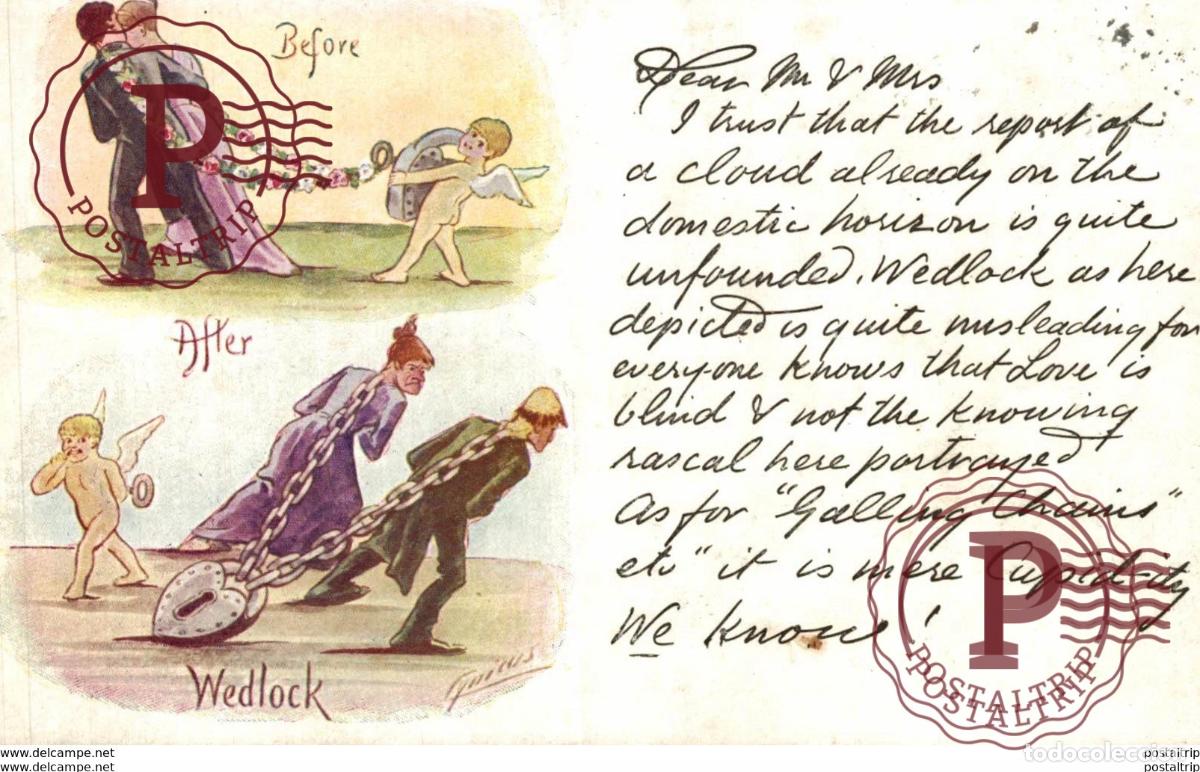 Before
After
Wedlock
Dear Mr & Mrs
I trust that the report of
a cloud already on the
domestic horizon is quite
unfounded. Wedlock as here
depicted is quite misleading for
everyone knows that Love is
blind & not the knowing
rascal here portrayed
As for "Galling Chains"
etc" it is mere Cupid-ity
We know!
P
POSTALTRIP
P
POSTALTRIP
POSTALTRIP
todocoleccion
www.delcampe.net
www.delcampe.net
postaltrip
postaltrip